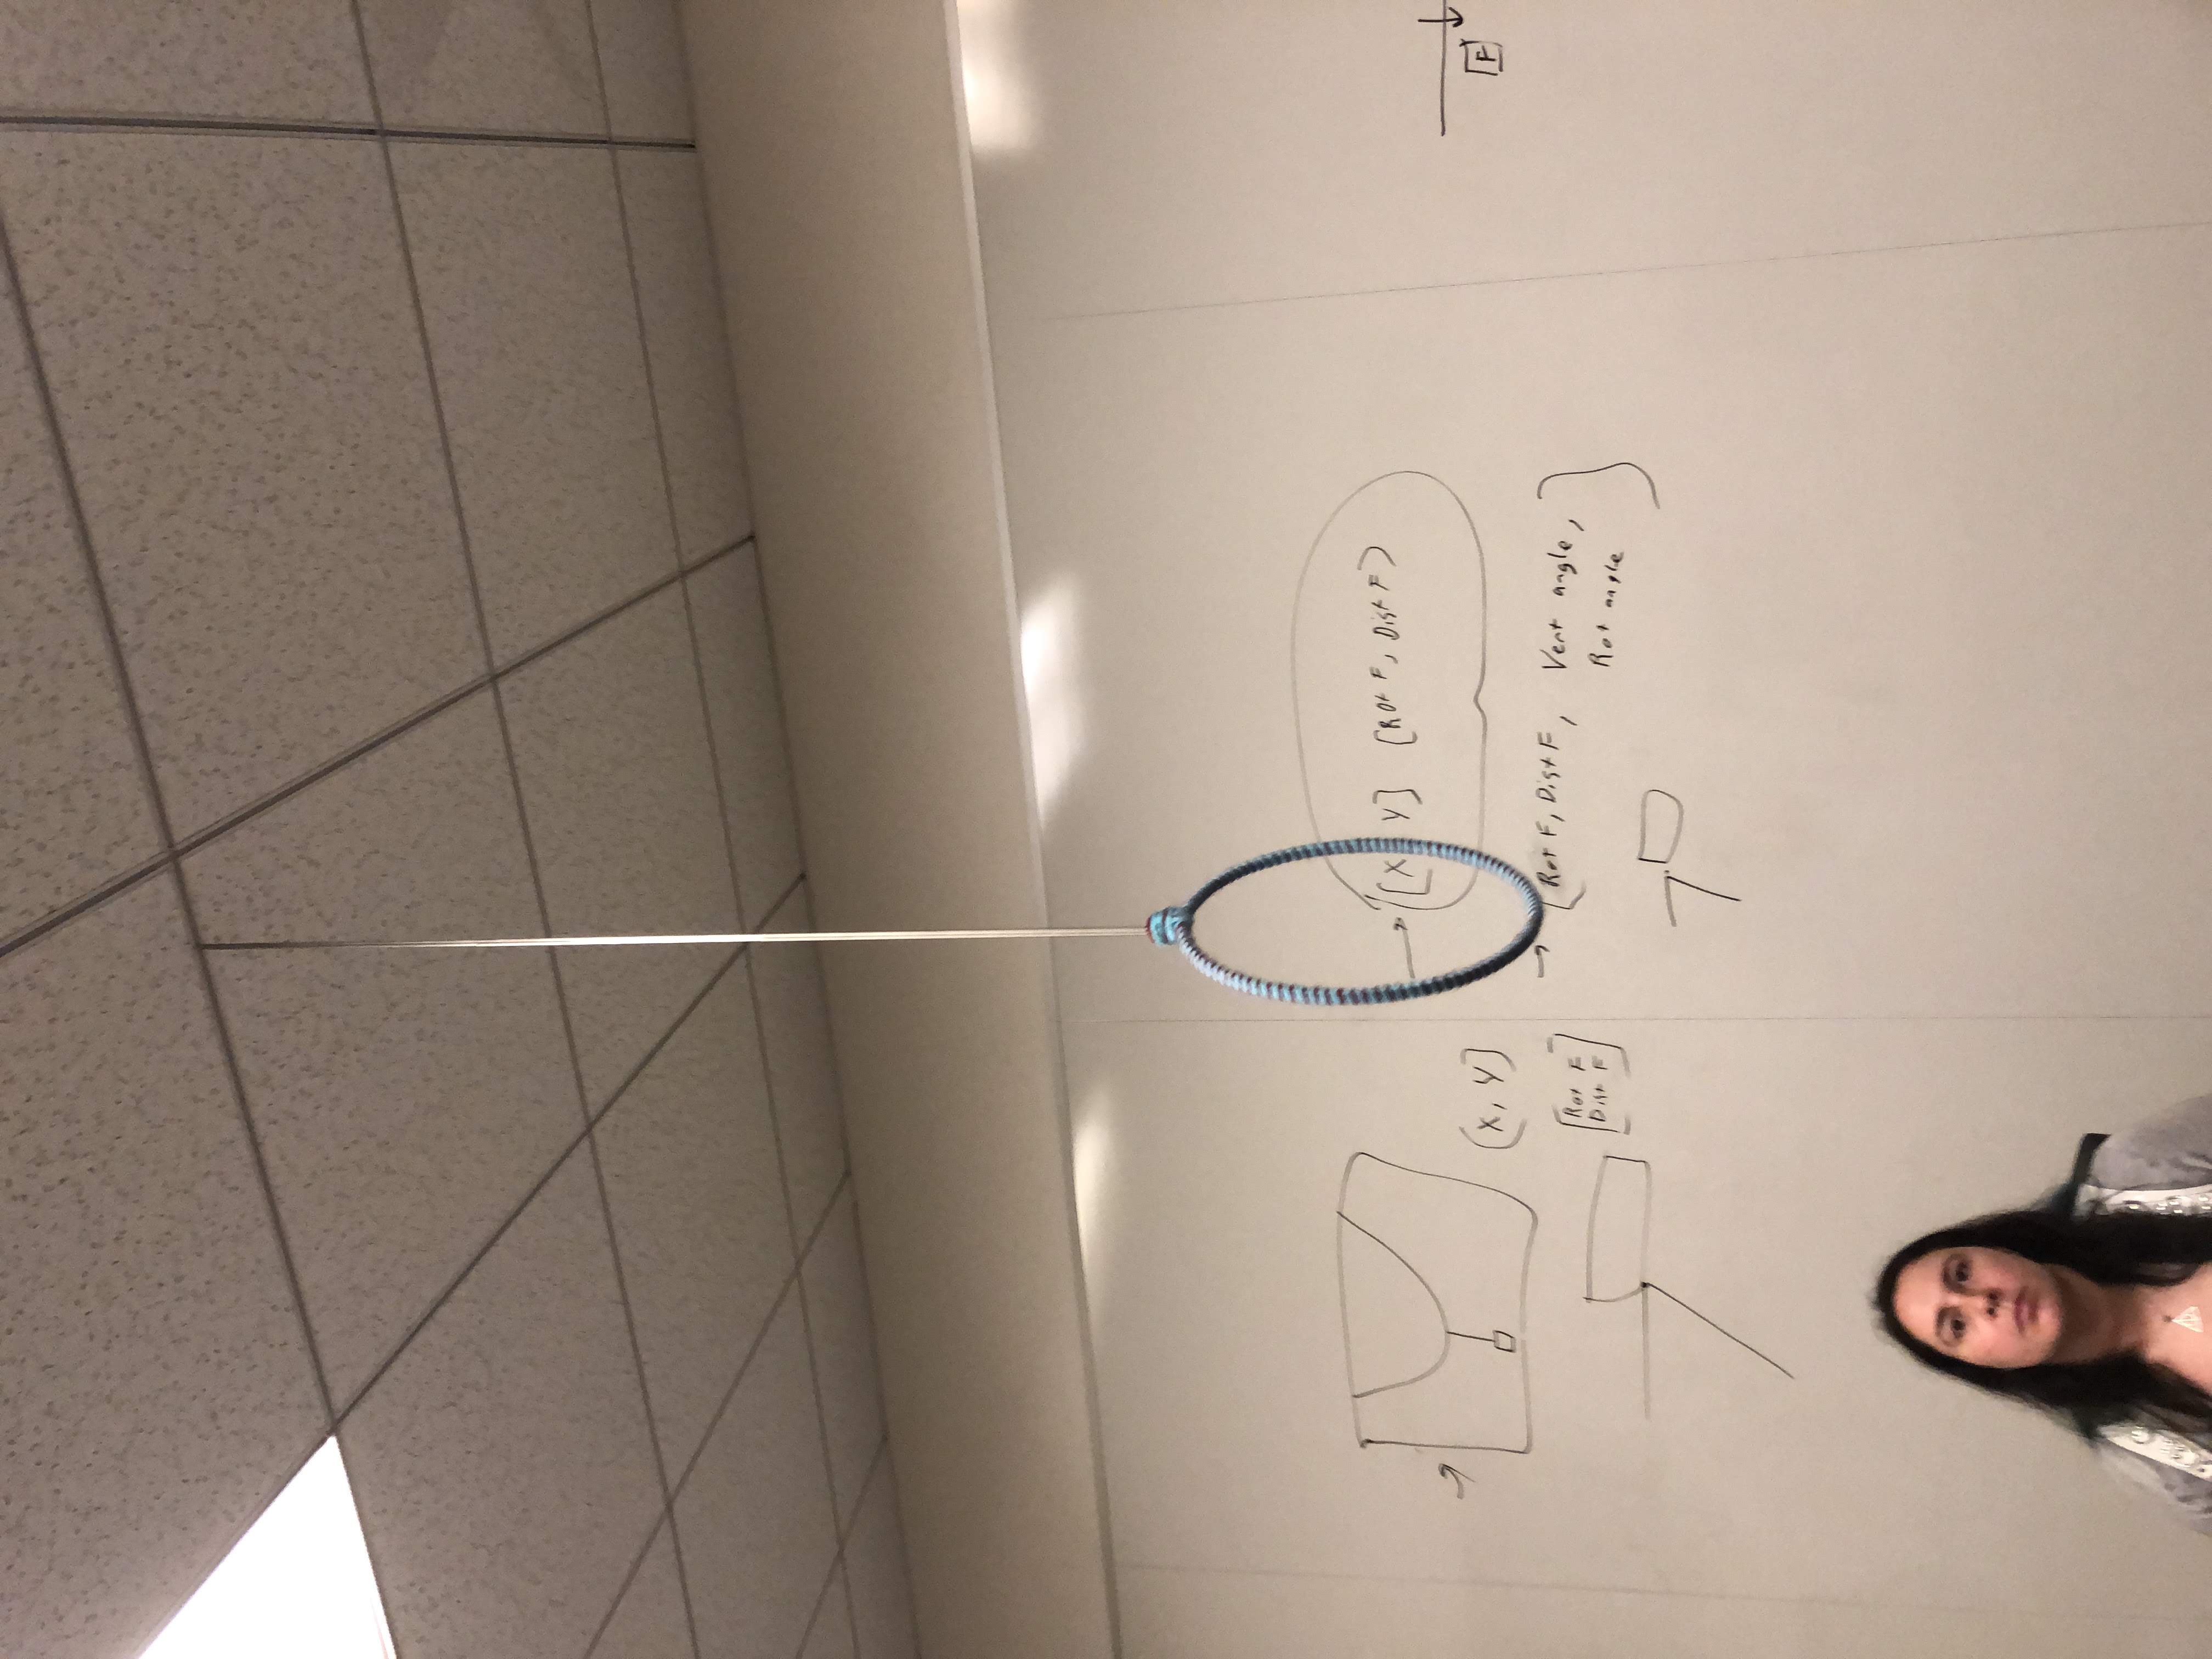 (X, Y]
[Rot F
Dist F]
[X Y] [Rot F, Dist F)
[Rot F, Dist F, Vert angle,
Rot angle]
F